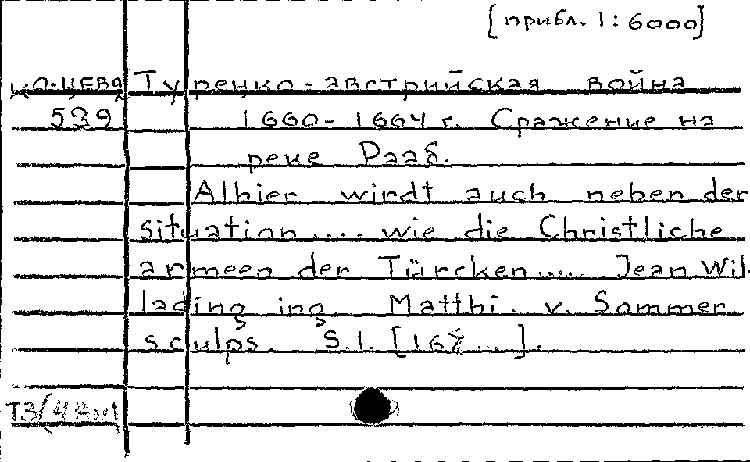 [прибл. 1:6000]
Ко.ЦЕВЯ Турецко-австрийская война
539 1660-1664 г. Сражение на
реке Рааб.
Alhier wirdt auch neben der
situation .... wie die Christliche
armeen der Türcken .... Jean Wil-
lading ing. Matthi. v. Sommer
sculps. S.l. [167...].